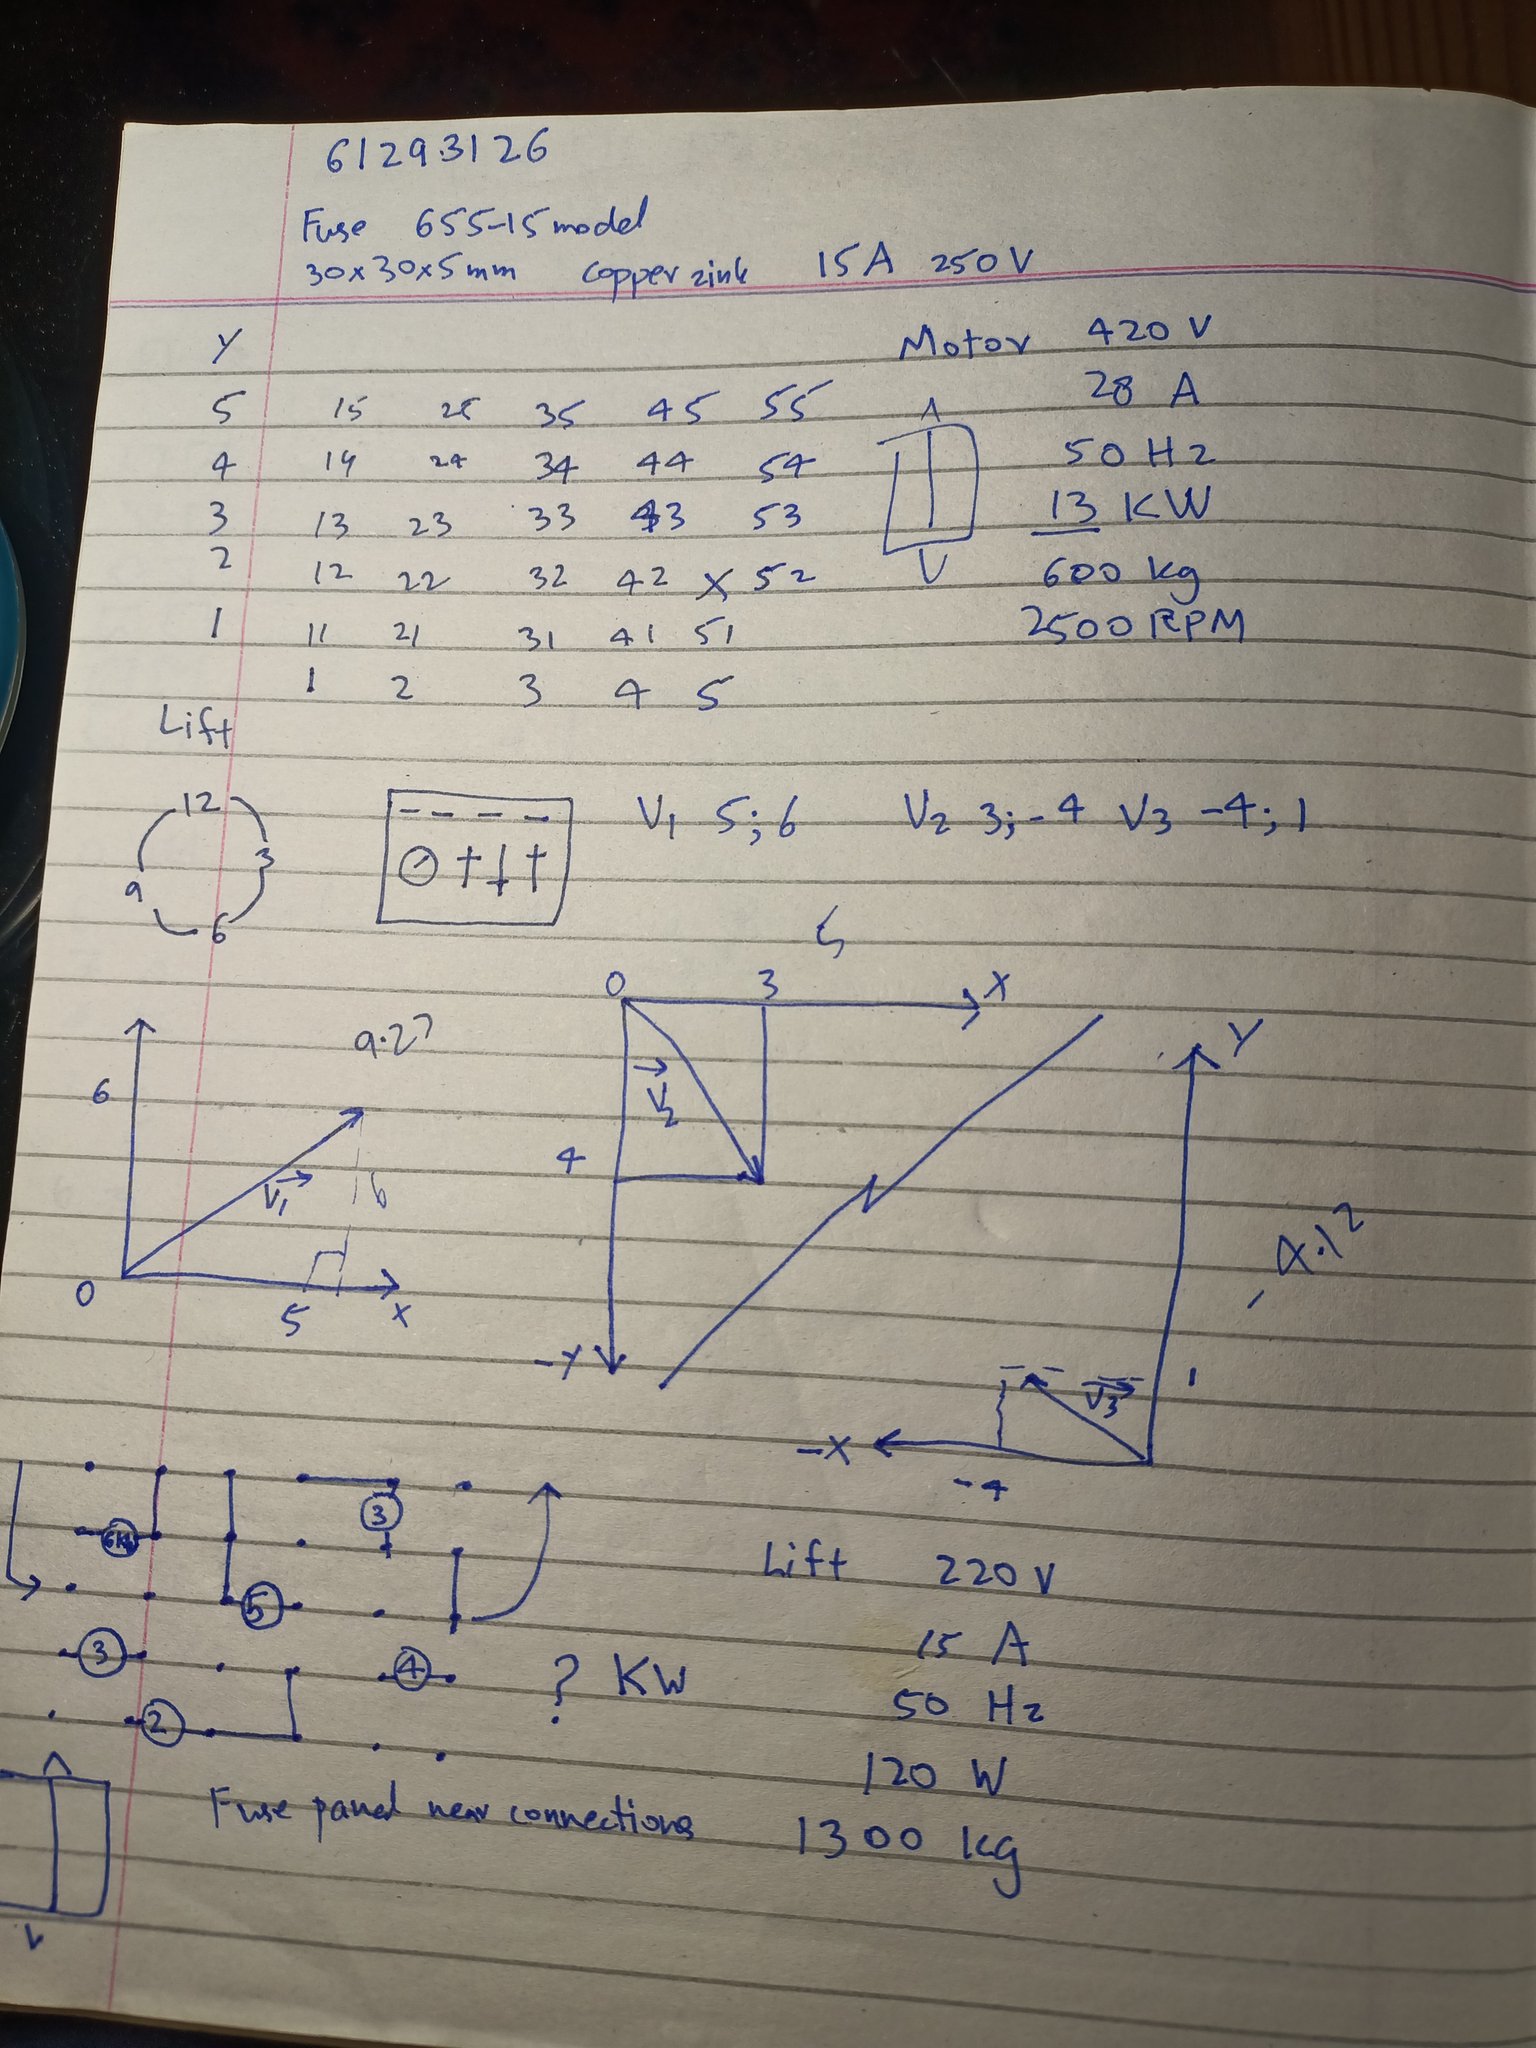 61293126
Fuse 655-15 model
30x30x5mm copper zink 15A 250V
Y
Motor 420 V
5 15 25 35 45 55
28 A
A
4 14 24 34 44 54
50 Hz
3 13 23 33 43 53
13 KW
2 12 22 32 42 X 52
V
600 kg
1 11 21 31 41 51
2500 RPM
1 2 3 4 5
Lift
12
3
6
9
V1 5;6 V2 3;-4 V3 -4;1
5
6
9.27
V1
6
0
5
X
0
3
X
V2
4
-Y
Y
4.12
1
V3
-X
-4
3
5
3
4
2
? KW
Lift 220 V
15 A
50 Hz
120 W
1300 kg
Fuse panel near connections